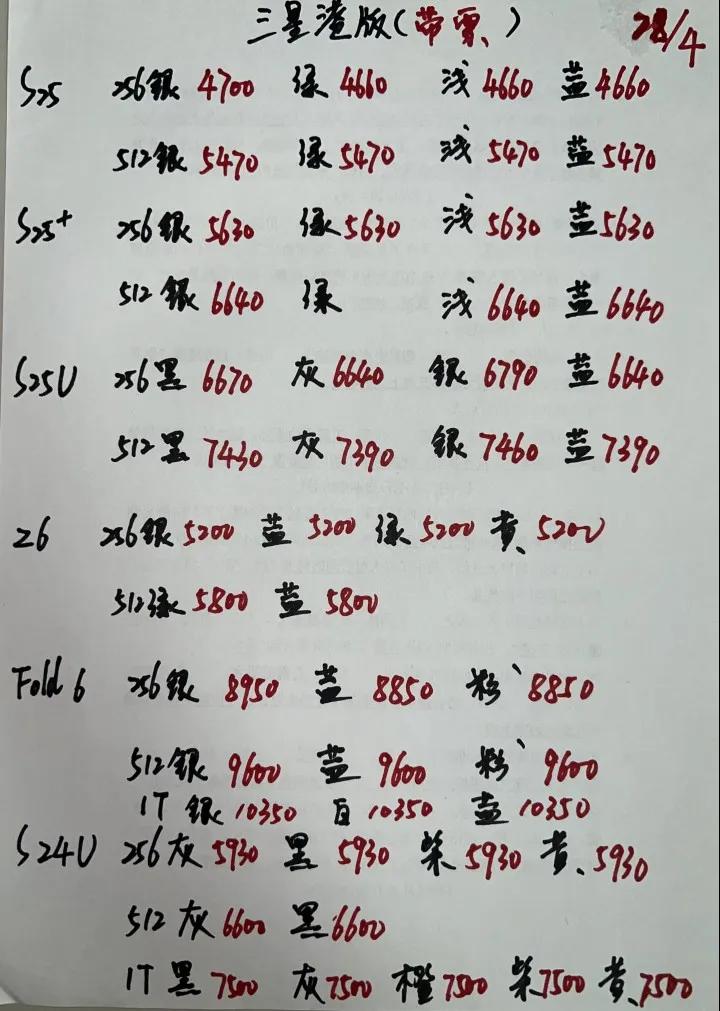 三星渣版(带票) 28/4
S25 256银 4700 绿 4660 浅 4660 蓝 4660
512银 5470 绿 5470 浅 5470 蓝 5470
S25+ 256银 5630 绿 5630 浅 5630 蓝 5630
512银 6640 绿 浅 6640 蓝 6640
S25U 256黑 6670 灰 6640 银 6790 蓝 6640
512黑 7430 灰 7390 银 7460 蓝 7390
Z6 256银 5200 蓝 5200 绿 5200 黄 5200
512绿 5800 蓝 5800
Fold 6 256银 8950 蓝 8850 粉 8850
512银 9600 蓝 9600 粉 9600
1T 银 10350 白 10350 蓝 10350
S24U 256灰 5930 黑 5930 紫 5930 黄 5930
512灰 6600 黑 6600
1T 黑 7500 灰 7500 橙 7500 紫 7500 黄 7500